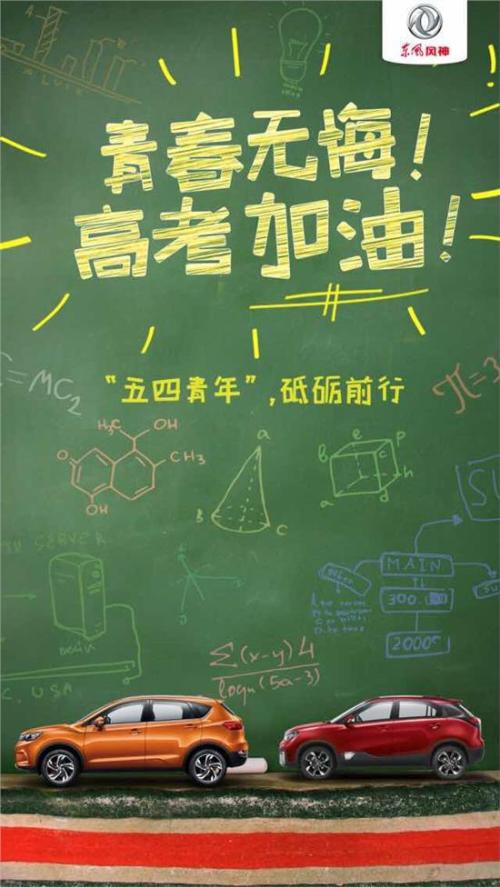 东风风神
青春无悔！
高考加油！
=MC2
π=3
"五四青年"，砥砺前行
H3C
OH
CH3
O
OH
a
B
C
b
e
p
a
d
h
SERVER
MAIN
300.
2000
C, USA
Σ(x-y)4
logn(5a-3)